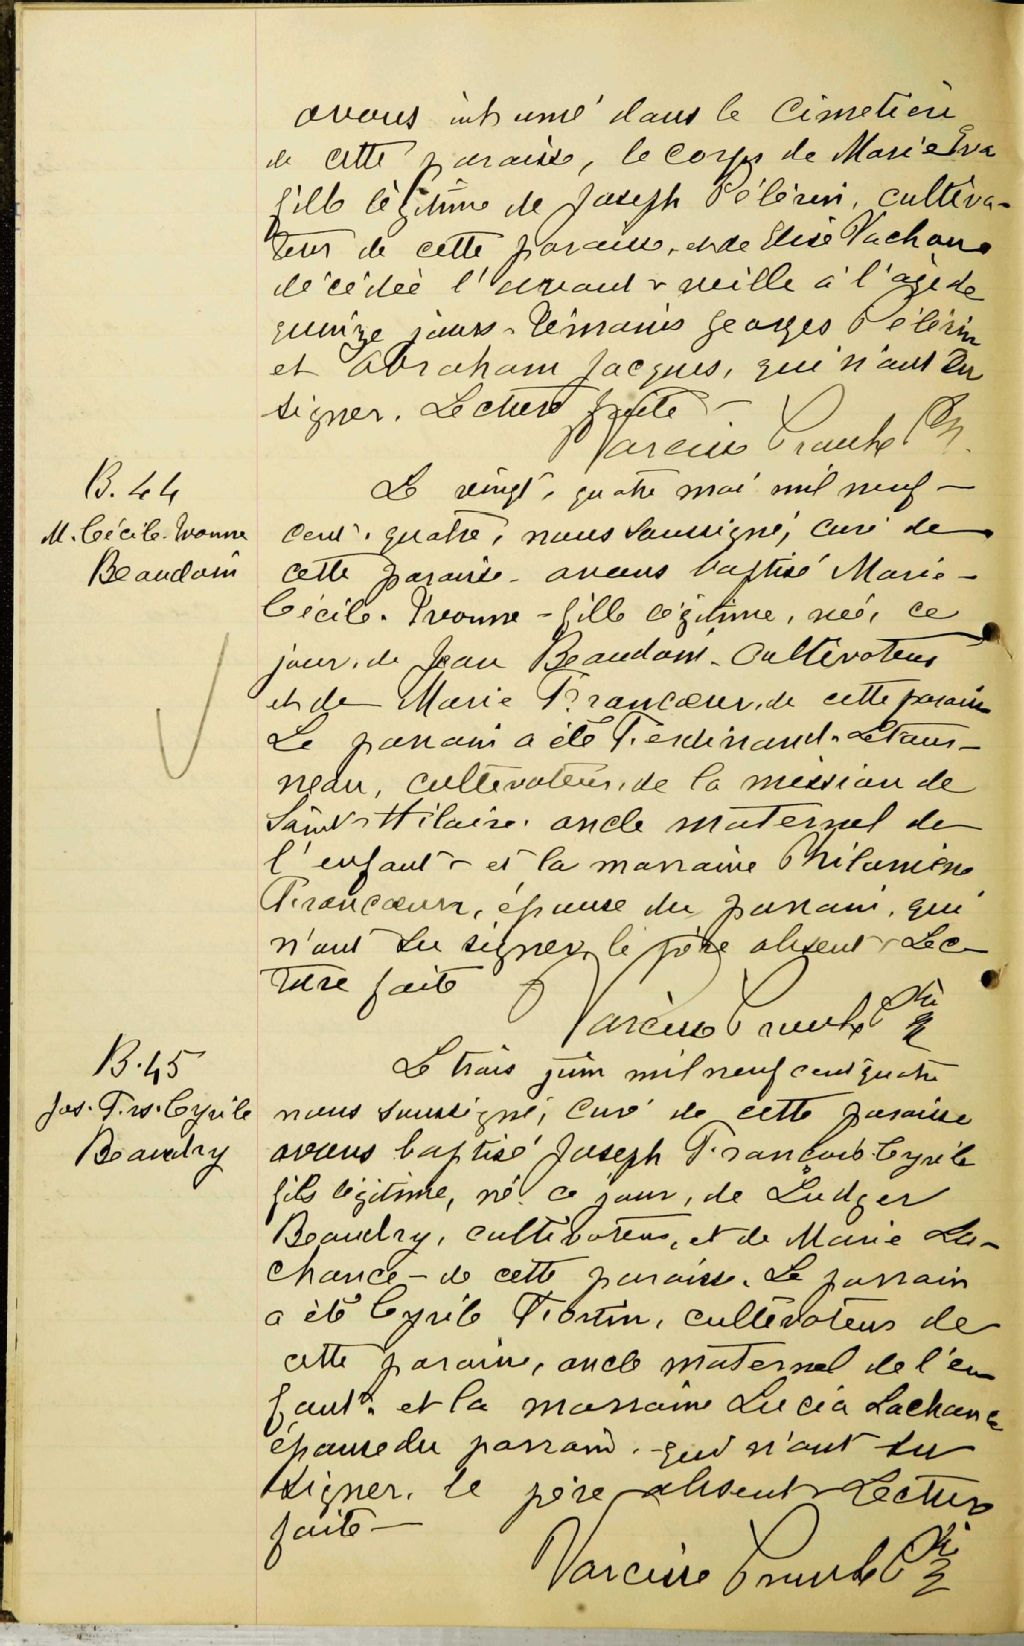 avons inhumé dans le Cimetière
de cette paroisse, le corps de Marie Eva
fille légitime de Joseph Pélérin, cultiva-
teur de cette paroisse, et de Elise Vachon
décédée l'avant-veille à l'age de
quinze jours. Témoins Georges Pélérin
et Abraham Jacques, qui n'ont su
signer. Lecture faite -
Narcisse Proulx
B. 44
M. Cécile. Yvonne
Beaudoin
Le vingt-quatre mai mil neuf -
cent-quatre, nous soussigné, curé de
cette paroisse - avons baptisé Marie -
Cécile - Yvonne - fille légitime, née, ce
jour, de Jean Beaudoin - Cultivateur
et de Marie Francœur, de cette paroisse
Le parrain a été Ferdinand Létour-
neau, cultivateur, de la mission de
Saint-Hilaire - oncle maternel de
l'enfant - et la marraine Philomène
Francœur, épouse du parrain, qui
n'ont su signer, le père absent. Lec-
ture faite
Narcisse Proulx
B. 45
Jos. Frs. Cyrile
Beaudry
Le trois juin mil neuf cent quatre
nous soussigné, curé de cette paroisse
avons baptisé Joseph François Cyrile
fils légitime, né ce jour, de Ludger
Beaudry, cultivateur, et de Marie La-
chance - de cette paroisse. Le parrain
a été Cyrile Fortin, cultivateur de
cette paroisse, oncle maternel de l'en
fant, et la marraine Lucia Lachance
épouse du parrain - qui n'ont su
signer, le père absent. Lecture
faite -
Narcisse Proulx